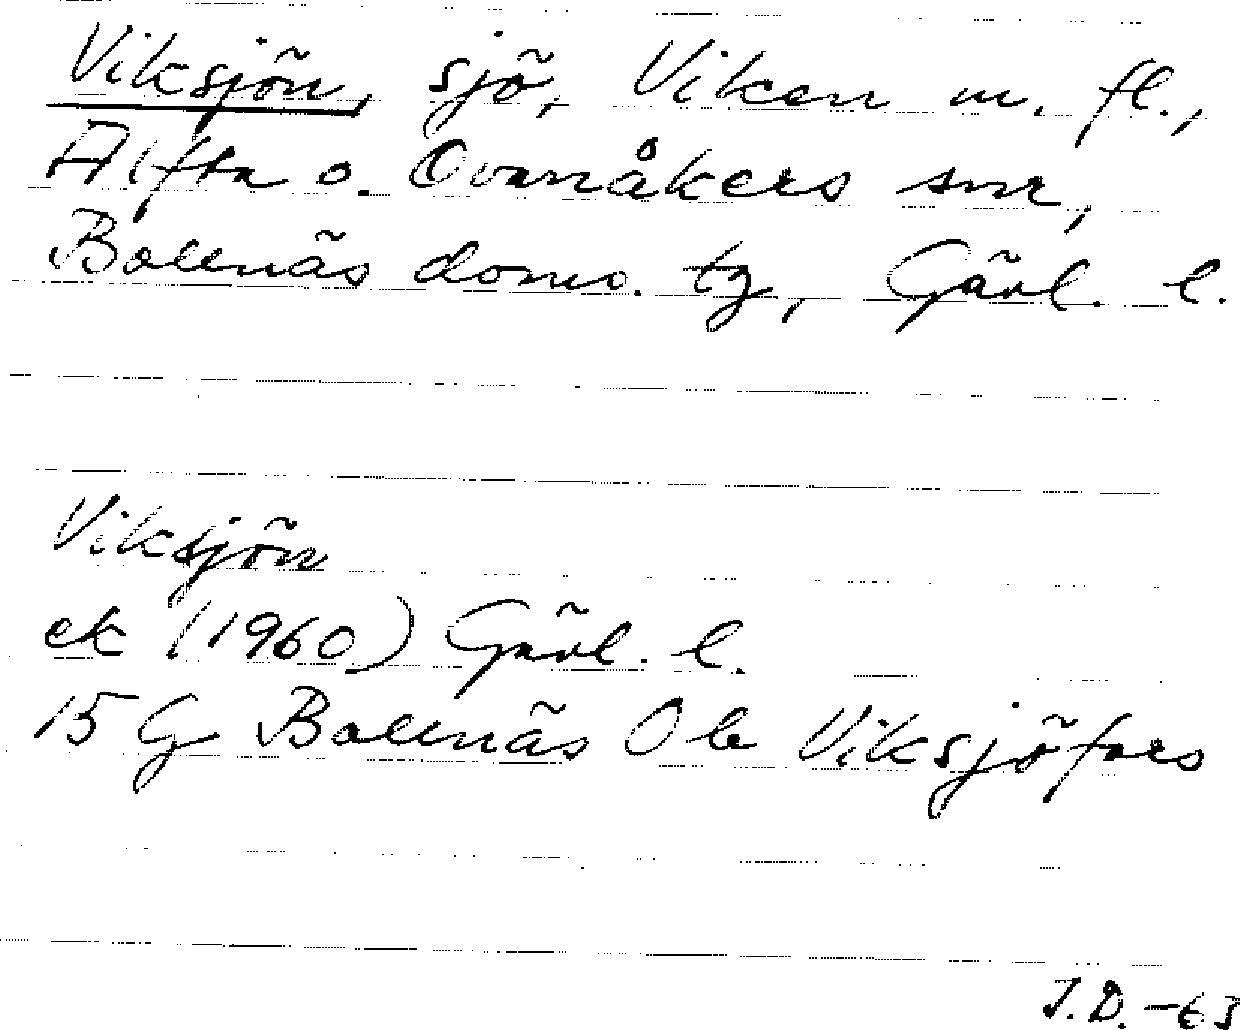 Viksjön, sjö, Viken m. fl.,
Alfta o. Ovanåkers snr,
Bollnäs doms. tg, Gävl. l.
Viksjön
ek (1960) Gävl. l.
15 G Bollnäs 0 b Viksjöfors
J.D. -63